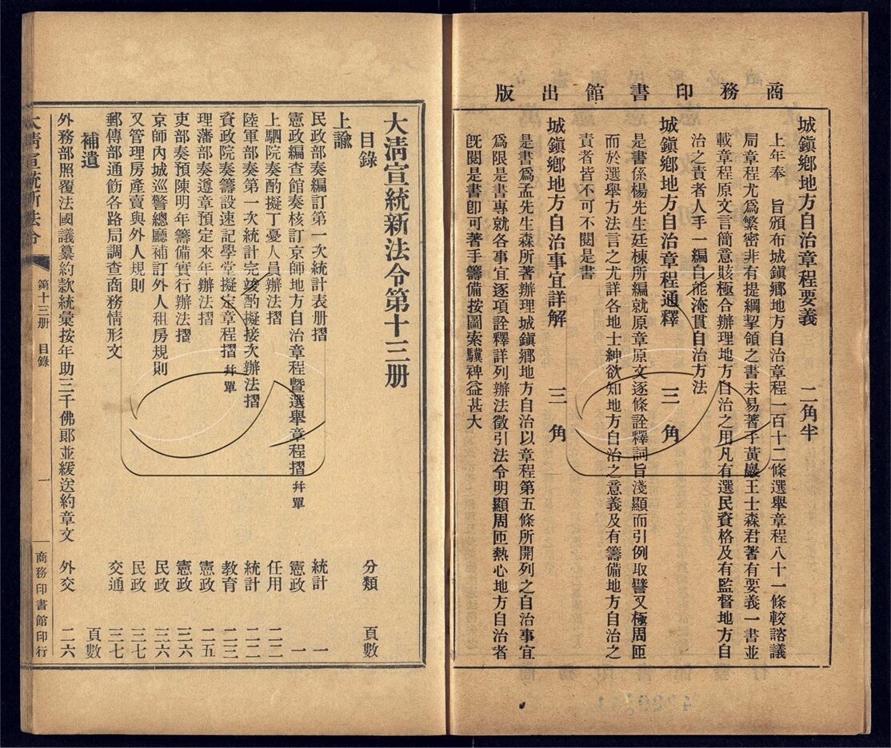 商務印書館出版
城鎮鄉地方自治章程要義 二角半
上年奉 旨頒布城鎮鄉地方自治章程一百十二條選舉章程八十一條較諮議
局章程尤爲繁密非有提綱挈領之書未易著手黃巖王士森君著有要義一書並
載章程原文言簡意賅極合辦理地方自治之用凡有選民資格及有監督地方自
治之責者人手一編自能淹貫自治方法
城鎮鄉地方自治章程通釋 三角
是書係楊先生廷棟所編就原章原文逐條詮釋詞旨淺顯而引例取譬又極周匝
而於選舉方法言之尤詳各地士紳欲知地方自治之意義及有籌備地方自治之
責者皆不可不閱是書
城鎮鄉地方自治事宜詳解 三角
是書爲孟先生森所著辦理城鎮鄉地方自治以章程第五條所開列之自治事宜
爲限是書專就各事宜逐項詮釋詳列辦法徵引法令明顯周匝熱心地方自治者
旣閱是書卽可著手籌備按圖索驥裨益甚大
大淸宣統新法令第十三册
目錄 分類 頁數
上諭
民政部奏編訂第一次統計表册摺 統計 一
憲政編查館奏核訂京師地方自治章程曁選舉章程摺 幷單 憲政 一
上駟院奏酌擬丁憂人員辦法摺 任用 二二
陸軍部奏第一次統計完竣酌擬接次辦法摺 統計 二二
資政院奏籌設速記學堂擬定章程摺 幷單 教育 二三
理藩部奏遵章預定來年辦法摺 憲政 二五
吏部奏預陳明年籌備實行辦法摺 憲政 三六
京師內城巡警總廳補訂外人租房規則 民政 三六
又管理房產賣與外人規則 民政 三七
郵傳部通飭各路局調查商務情形文 交通 三七
補遺 頁數
外務部照覆法國議纂約款統彙按年助三千佛郞並緩送約章文 外交 二六
大淸宣統新法令 第十三册 目錄 一 商務印書館印行